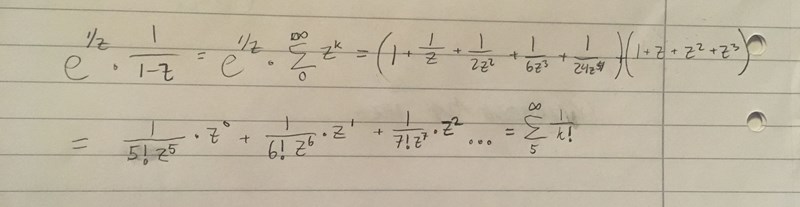 e^{1/z} · \frac{1}{1-z} = e^{1/z} · \sum_{0}^{∞} z^k = (1 + \frac{1}{z} + \frac{1}{2z^2} + \frac{1}{6z^3} + \frac{1}{24z^4})(1 + z + z^2 + z^3)
= \frac{1}{5! z^5} · z^0 + \frac{1}{6! z^6} · z^1 + \frac{1}{7! z^7} · z^2 ... = \sum_{5}^{∞} \frac{1}{k!}